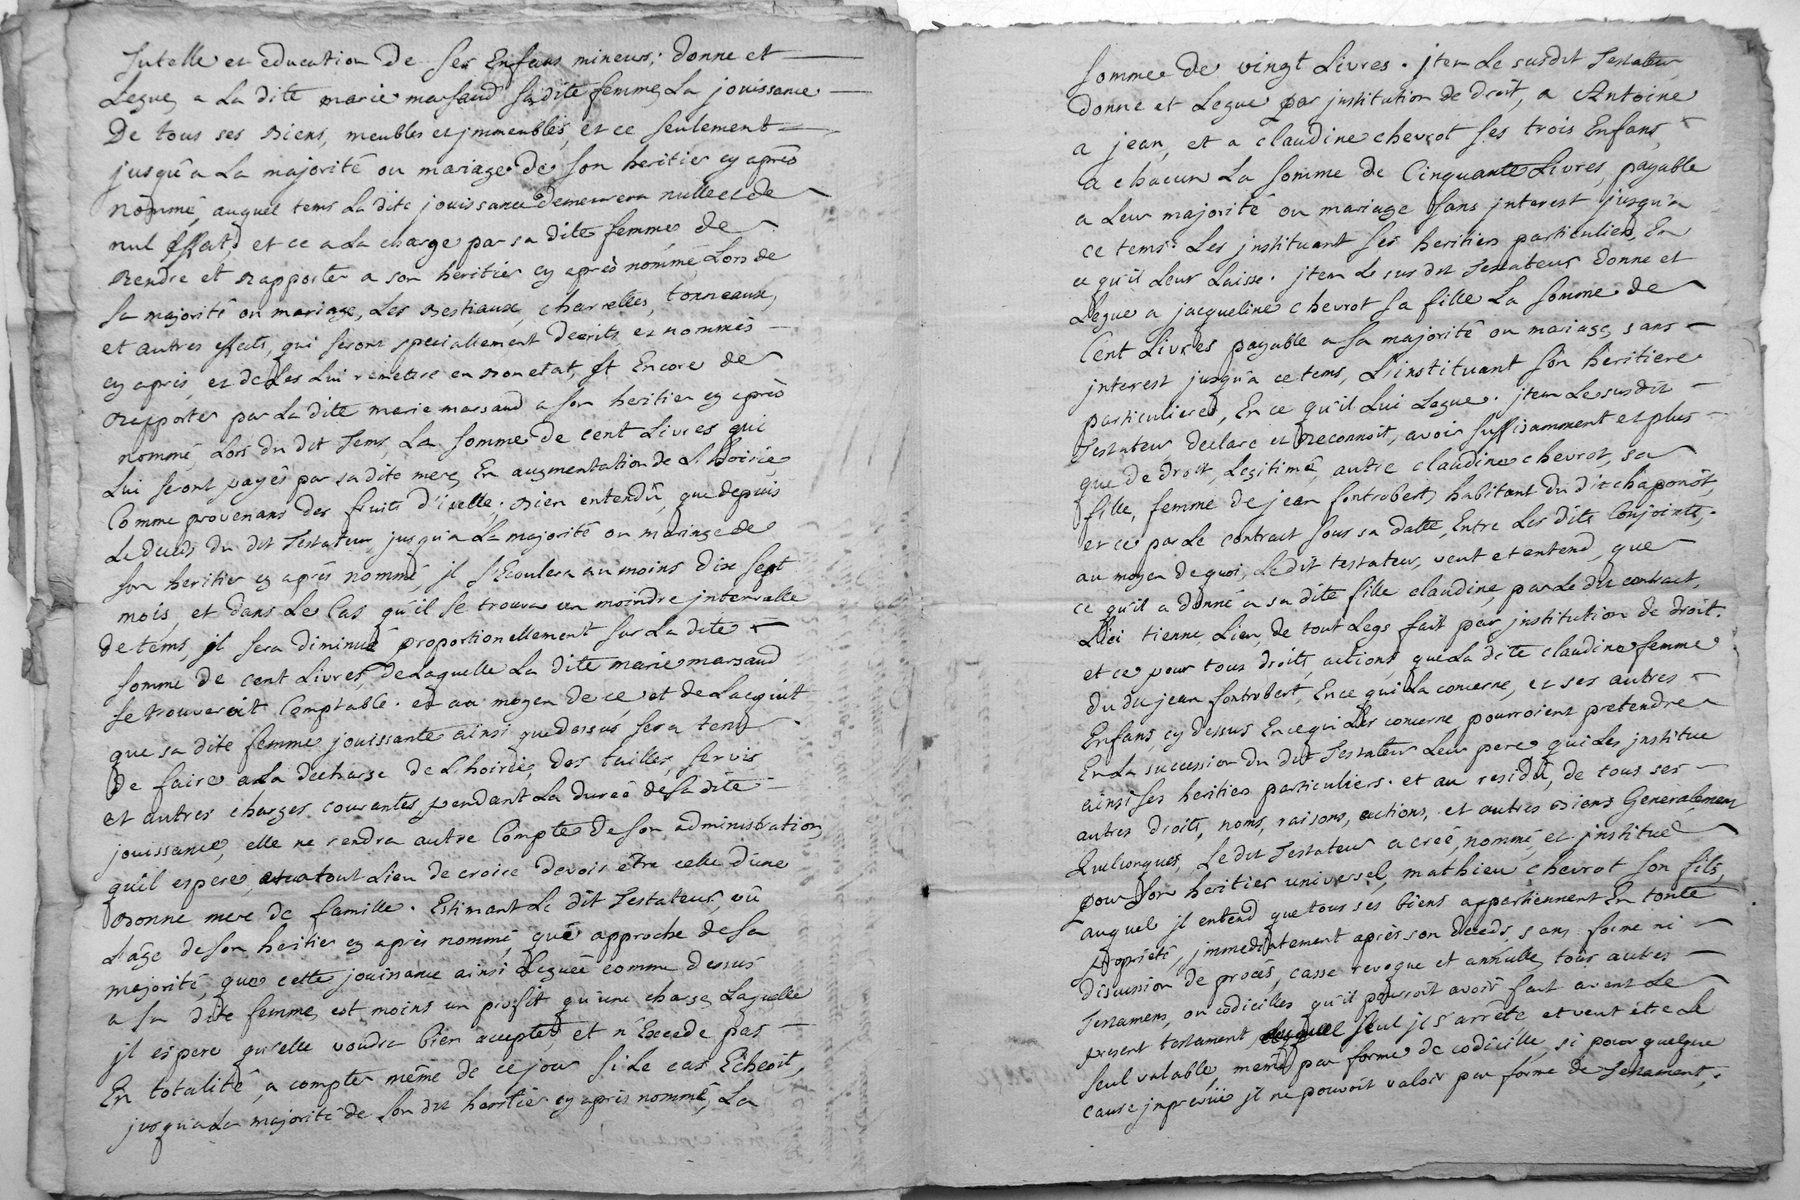 tutelle et education de ses Enfans mineurs; donne et
Legue, a La dite marie marsaud sa dite femme, La jouissance
De tous ses Biens, meubles et jmmeubles, et ce seulement
jusqu'a La majorité ou mariage de son heritier cy après
nommé, auquel tems La dite jouissance demeurera nulle et de
nul effat, et ce a La charge par sa dite femme de
Rendre et Rapporter a son heritier cy après nommé, Lors de
sa majorité ou mariage, Les Bestiaux, charrettes, tonneaux,
et autres effats, qui seront specialement decrits et nommés
cy après, et de Les Lui remettre en Bon etat, et Encore de
Rapporter par La dite marie marsaud a son heritier cy après
nommé, Lors du dit tems, La somme de cent Livres qui
Lui seront payés par sa dite mere, En augmentation de L'hoirie,
Comme provenans des fruits d'icelle; Bien entendû, que depuis
Le decès du dit Testateur, jusqu'a La majorité ou mariage de
son heritier cy après nommé, jl s'Ecoulera au moins dix sept
mois, et dans Le Cas qu'il se trouva un moindre jntervalle
de tems, jl sera diminué proportionellement sur La dite
somme de cent Livres, de Laquelle La dite marie marsaud
se trouveroit Comptable. et au moyen de ce, et de L'acquit
que sa dite femme, jouissante ainsi que dessus, sera tenû
De faire a La decharge de L'hoirie, des tailles, servis
et autres charges courantes, pendant La durée de sa dite
jouissance, elle ne rendra autre Compte de son administration,
qu'il espere, a tout Lieu de croire devoir être celle d'une
Bonne mere de famille. Estimant Le dit Testateur, vû
L'âge de son heritier cy après nommé, qui approche de sa
majorité, que cette jouissance ainsi Leguée comme dessus
a sa dite femme, est moins un profit qu'une charge, Laquelle
jl espere qu'elle voudra bien accepter et n'Excede pas
En totalité, a compter même de ce jour si Le cas Echeoit,
jusqu'a La majorité de son dit heritier cy après nommé, La
somme de vingt Livres. jtem Le susdit Testateur
donne et Legue par jnstitution de droit, a Antoine
a jean, et a claudine chevrot ses trois Enfans,
a chacun La somme de Cinquante Livres, payable
a Leur majorité ou mariage sans jnterest jusqu'a
ce tems. Les jnstituant ses heritiers particuliers, En
ce qu'il Leur Laisse. jtem Le sus dit Testateur donne et
Legue a jacqueline chevrot sa fille La somme de
Cent Livres payable a sa majorité ou mariage, sans
jnterest jusqu'a ce tems, L'instituant son heritiere
particuliere, En ce qu'il Lui Legue. jtem Le susdit
Testateur declare et Reconnoit, avoir suffisamment et plus
que de droit, Legitimé, autre claudine chevrot, sa
fille, femme de jean fontrobert, habitant du dit chaponôst,
et ce par Le contrat sous sa datte, Entre Les dits Conjoints,
au moyen de quoi, Le dit testateur, veut et entend, que
ce qu'il a donné a sa dite fille claudine, par Le dit contrat,
Lui tienne Lieu, de tout Legs fait par jnstitution de droit.
et ce pour tous droits, actions, que La dite claudine femme
du dit jean fontrobert, En ce qui La concerne, et ses autres
Enfans cy dessus En ce qui Les concerne pourroient pretendre
En La succession du dit Testateur Leur pere, qui Les jnstitue
ainsi ses heritiers particuliers. et au residû, de tous ses
autres droits, noms, raisons, actions, et autres Biens Generalement
Quelconques, Le dit Testateur a créé, nommé, et jnstitué
pour son heritier universel, mathieu chevrot son fils,
auquel jl entend que tous ses biens appartiennent En toute
Propriété, jmmediatement après son decès, sans forme ni
discussion de procès, casse revoque et annulle, tous autres
Testamens, ou codicilles qu'il pourroit avoir fait avant Le
present testament, auquel seul jl s'arrête et veut être Le
seul valable, même par forme de codicille, si pour quelque
cause jmprevüe jl ne pouvoit valoir par forme de Testament,